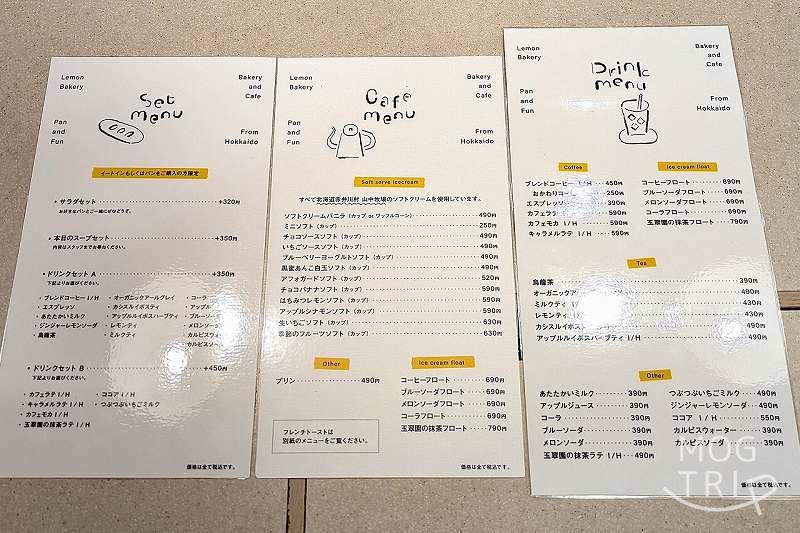 Lemon Bakery
Bakery and Cafe
Set menu
Pan and Fun
From Hokkaido
イートインもしくはパンをご購入の方限定
・サラダセット +320円
お好きなパンとご一緒にぜひどうぞ。
・本日のスープセット +350円
内容はスタッフまでお尋ねください。
・ドリンクセット A +350円
下記よりお選びください。
・ブレンドコーヒー I/H ・オーガニックアールグレイ ・コーラ
・エスプレッソ ・カシスルイボスティ ・アップル
・あたたかいミルク ・アップルルイボスハーブティ ・ブルー
・ジンジャーレモンソーダ ・レモンティ ・メロンソーダ
・烏龍茶 ・ミルクティ ・カルピス
・カルピスソ
・ドリンクセット B +450円
下記よりお選びください。
・カフェラテ I/H ・ココア I/H
・キャラメルラテ I/H ・つぶつぶいちごミルク
・カフェモカ I/H
・玉翠園の抹茶ラテ I/H
価格は全て税込です。
Lemon Bakery
Bakery and Cafe
Cafe menu
Pan and Fun
From Hokkaido
Soft serve icecream
すべて北海道赤井川村 山中牧場のソフトクリームを使用しています。
ソフトクリームバニラ（カップ or ワッフルコーン） 490円
ミニソフト（カップ） 250円
チョコソースソフト（カップ） 490円
いちごソースソフト（カップ） 490円
ブルーベリーヨーグルトソフト（カップ） 490円
黒蜜あんこ白玉ソフト（カップ） 490円
アフォガードソフト（カップ） 520円
チョコバナナソフト（カップ） 590円
はちみつレモンソフト（カップ） 590円
アップルシナモンソフト（カップ） 590円
生いちごソフト（カップ） 630円
季節のフルーツソフト（カップ） 630円
Other
プリン 490円
Ice cream float
コーヒーフロート 690円
ブルーソーダフロート 690円
メロンソーダフロート 690円
コーラフロート 690円
玉翠園の抹茶フロート 790円
フレンチトーストは
別紙のメニューをご覧ください。
価格は全て税込です。
Lemon Bakery
Bakery and Cafe
Drink menu
Pan and Fun
From Hokkaido
Coffee
ブレンドコーヒー I/H 450円
おかわりコー 250円
エスプレッソ 390円
カフェラテ 550円
カフェモカ I/H 590円
キャラメルラテ I/H 590円
Ice cream float
コーヒーフロート 690円
ブルーソーダフロート 690円
メロンソーダフロート 690円
コーラフロート 690円
玉翠園の抹茶フロート 790円
Tea
烏龍茶 390円
オーガニックア 490円
ミルクティ 430円
レモンティ 430円
カシスルイボステ 490円
アップルルイボスハーブティ I/H 490円
Other
あたたかいミルク 390円
アップルジュース 390円
コーラ 390円
ブルーソーダ 390円
メロンソーダ 390円
玉翠園の抹茶ラテ I/H 490円
つぶつぶいちごミルク 490円
ジンジャーレモンソーダ 490円
ココア I/H 550円
カルピスウォーター 390円
カルピスソーダ 390円
価格は全て税込です。
MOG
TRIP